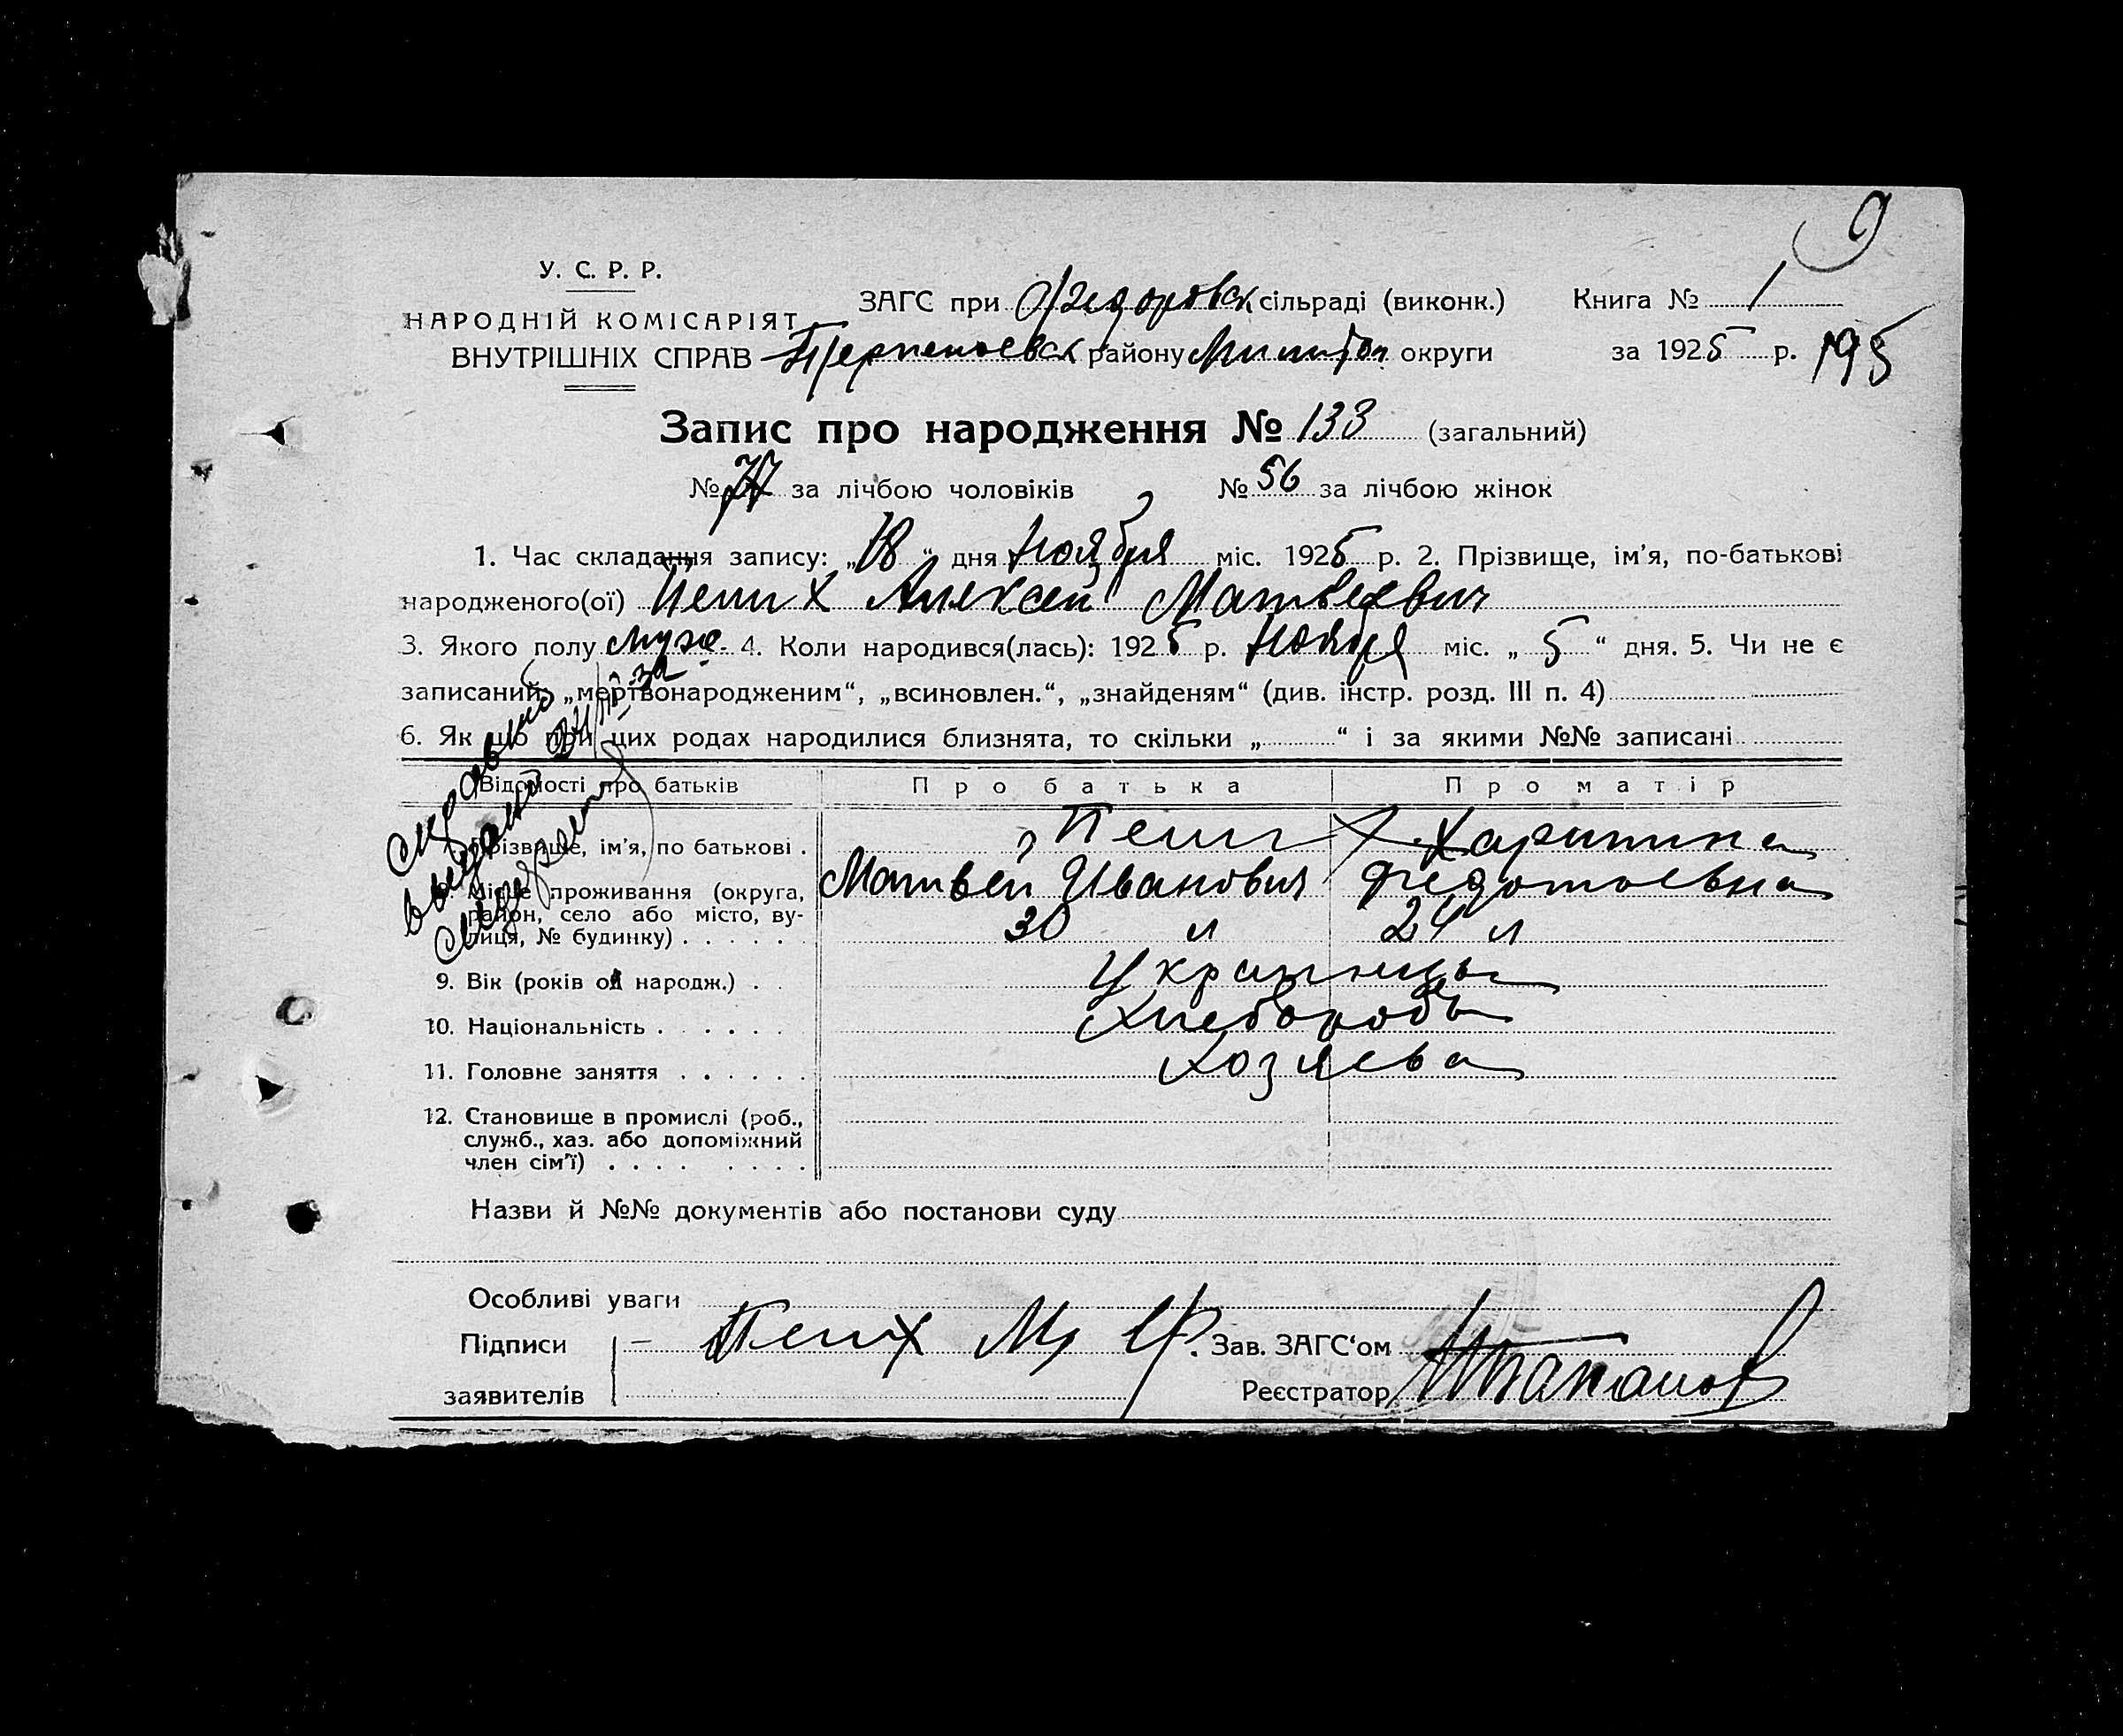 9
У. С. Р. Р.
НАРОДНІЙ КОМІСАРІЯТ
ВНУТРІШНІХ СПРАВ
ЗАГС при Федоровск сільраді (виконк.)
Терпеньевск району Мелитоп. округи
Книга № 1
за 1925 р. 195
Запис про народження № 133 (загальний)
№ 77 за лічбою чоловіків № 56 за лічбою жінок
1. Час складання запису: „18“ дня Ноября міс. 1925 р. 2. Прізвище, ім’я, по-батькові
народженого(ої) Пених Алексей Матвеевич
3. Якого полу муж. 4. Коли народився(лась): 1925 р. Ноября міс. „5“ дня. 5. Чи не є
записаний: „мертвонародженим“, „всиновлен.“, „знайденям“ (див. інстр. розд. III п. 4)
6. Як що при цих родах народилися близнята, то скільки „ “ і за якими №№ записані
Відомості про батьків Про батька Про матір
7. Прізвище, ім’я, по батькові . Пених Харитина
Матвей Иванович Федотьевна
8. Місце проживання (округа,
район, село або місто, ву-
лиця, № будинку) . . . . . 30 л 24 л
9. Вік (років од народж.) . . Украинцы
10. Національність . . . . . . Хлеборобы
11. Головне заняття . . . . . . Хозяева
12. Становище в промислі (роб.,
служб., хаз. або допоміжний
член сім’ї) . . . . . . . .
Назви й №№ документів або постанови суду
Особливі уваги
Підписи — Пених М, Зав. ЗАГС‘ом
заявителів Реєстратор